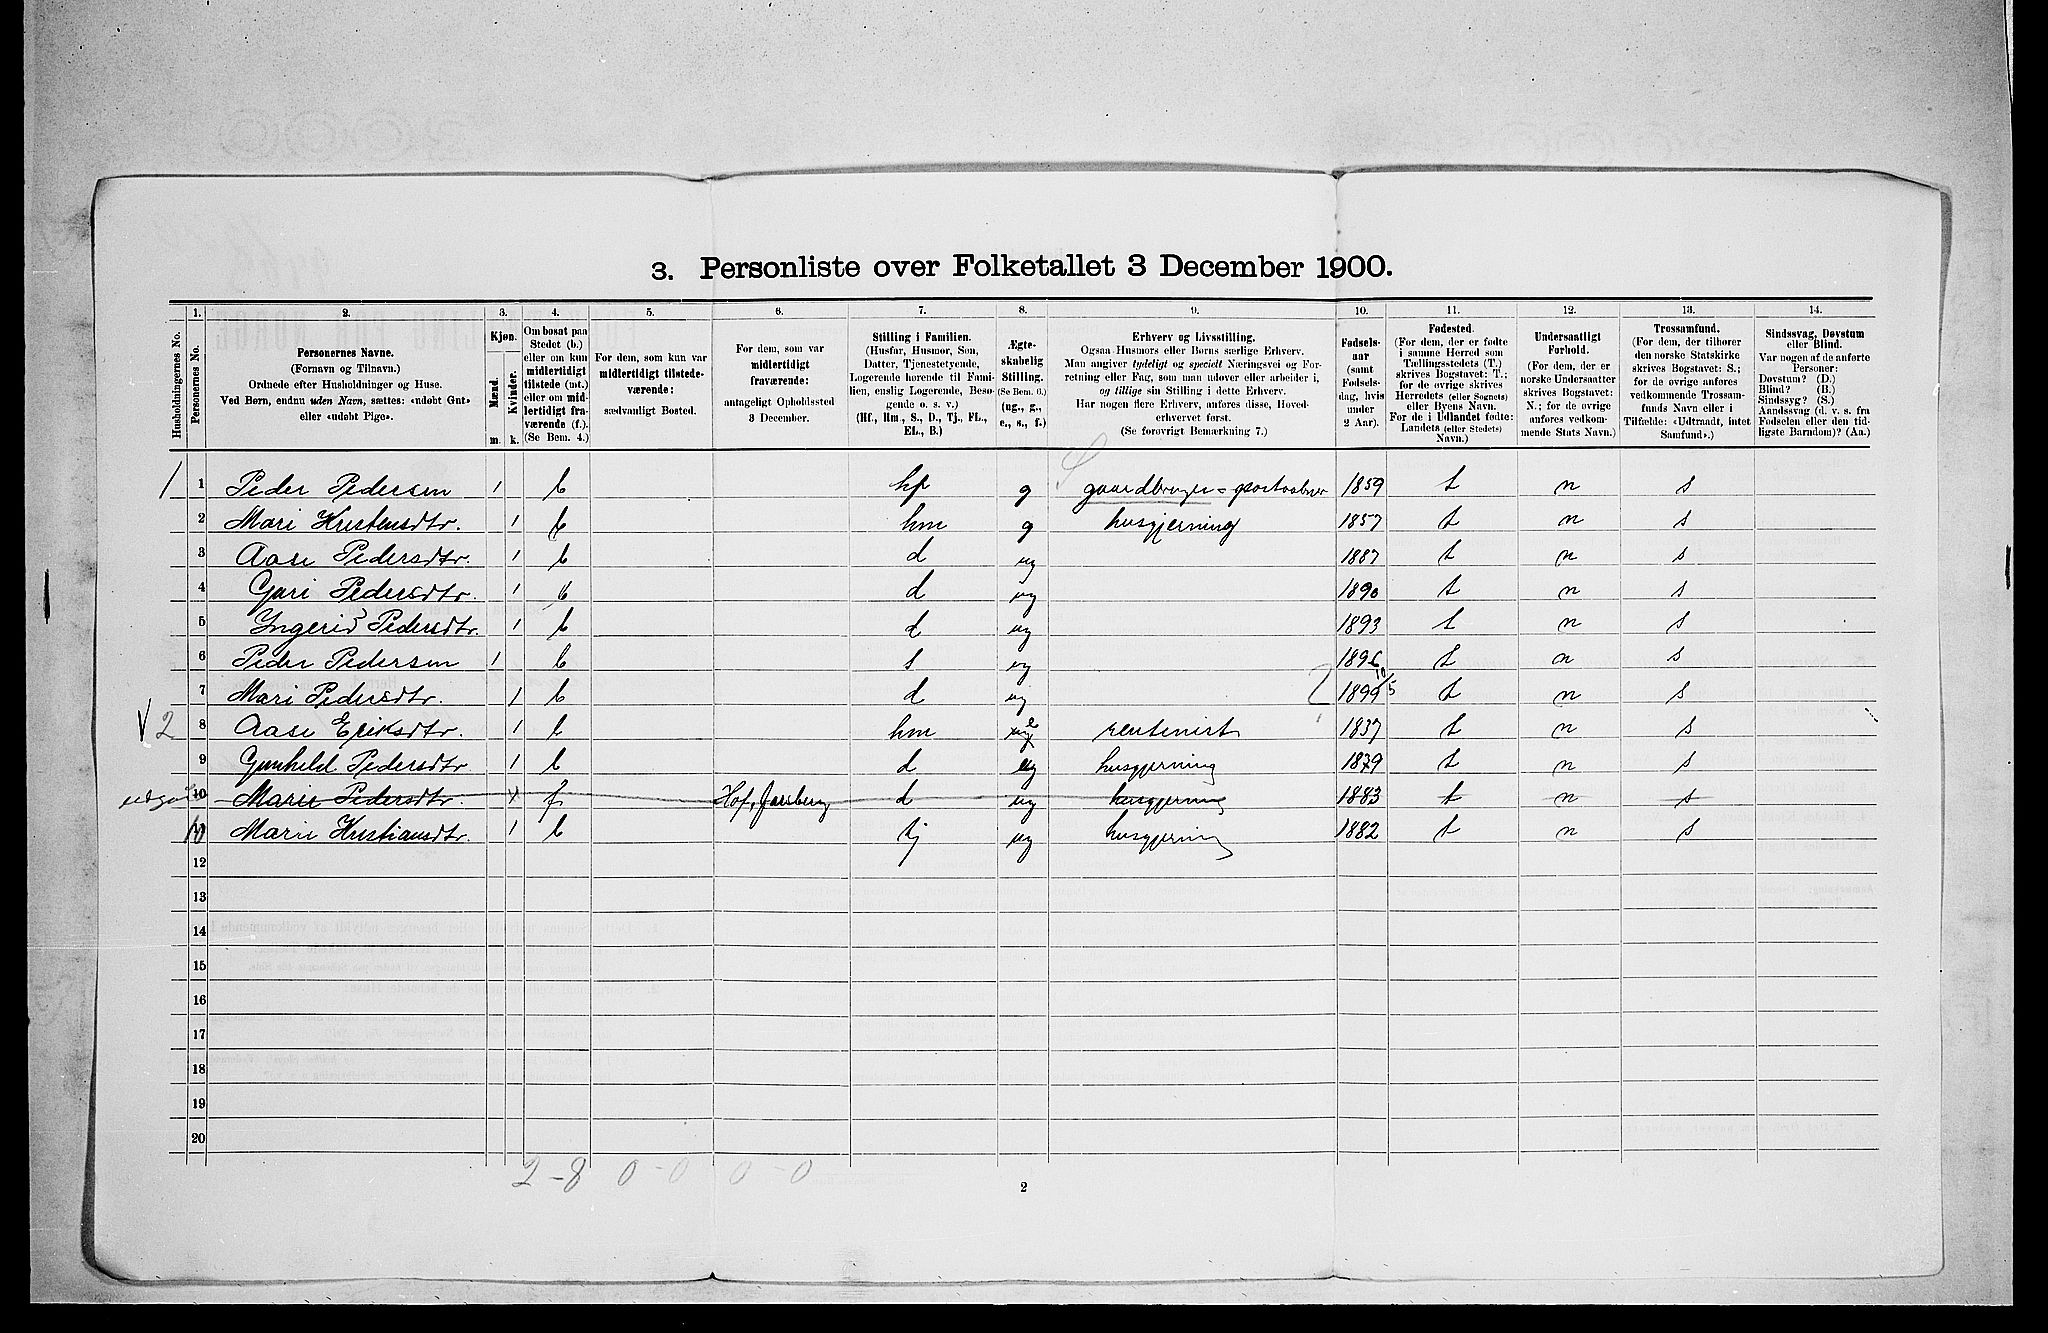 3. Personliste over Folketallet 3 December 1900.
Husholdningernes No.
1. Personernes No.
2. Personernes Navne. (Fornavn og Tilnavn.) Ordnede efter Husholdninger og Huse. Ved Børn, endnu uden Navn, sættes: «udøbt Gut» eller «udøbt Pige».
3. Kjøn. Mænd. m. Kvinder. k.
4. Om bosat paa Stedet (b.) eller om kun midlertidigt tilstede (mt.) eller om midlertidigt fraværende (f.) (Se Bem. 4.)
5. For dem, som kun var midlertidigt tilstedeværende: sædvanligt Bosted.
6. For dem, som var midlertidigt fraværende: antageligt Opholdssted 3 December.
7. Stilling i Familien. (Husfar, Husmor, Søn, Datter, Tjenestetyende, Logerende hørende til Familien, enslig Logerende, Besøgende o. s. v.) (Hf., Hm., S., D., Tj., FL., EL., B.)
8. Ægteskabelig Stilling. (Se Bem. 6.) (ug., g., e., s., f.)
9. Erhverv og Livsstilling. Ogsaa Husmors eller Børns særlige Erhverv. Man angiver tydeligt og specielt Næringsvei og Forretning eller Fag, som man udøver eller arbeider i, og tillige sin Stilling i dette Erhverv. Har nogen flere Erhverv, anføres disse, Hovederhvervet først. (Se forøvrigt Bemærkning 7.)
10. Fødselsaar (samt Fødselsdag, hvis under 2 Aar).
11. Fødested. (For dem, der er fødte i samme Herred som Tællingsstedets (T.) skrives Bogstavet: T.; for de øvrige skrives Herredets (eller Sognets) eller Byens Navn. For de i Udlandet fødte: Landets (eller Stedets) Navn.)
12. Undersaatligt Forhold. (For dem, der er norske Undersaatter skrives Bogstavet: N.; for de øvrige anføres vedkommende Stats Navn.)
13. Trossamfund. (For dem, der tilhører den norske Statskirke skrives Bogstavet: S.; for de øvrige anføres vedkommende Trossamfunds Navn eller i Tilfælde: «Udtraadt, intet Samfund».)
14. Sindssvag, Døvstum eller Blind. Var nogen af de anførte Personer: Døvstum? (D.) Blind? (B.) Sindssyg? (S.) Aandssvag (d. v. s. fra Fødselen eller den tidligste Barndom)? (Aa.)
1 1 Peder Pedersen 1 b hf g gaardbruger = postaabner 1859 t n s
2 Mari Kristensdtr. 1 b hm g husgjerning 1857 t n s
3 Aase Pedersdtr. 1 b d ug 1887 t n s
4 Gari Pedersdtr. 1 b d ug 1890 t n s
5 Ingerid Pedersdtr. 1 b d ug 1893 t n s
6 Peder Pedersen 1 b s ug 1896 t n s
7 Mari Pedersdtr. 1 b d ug 1899 10/5 t n s
V 2 8 Aase Eriksdtr. 1 b hm e rentenist 1837 t n s
9 Gunhild Pedersdtr. 1 b d ug husgjerning 1879 t n s
10 Marie Pedersdtr. f Hof, Jarlberg d ug husgjerning 1883 t n s
Marie Kristiansdtr. 1 b tj ug husgjerning 1882 t n s
12
13
14
15
16
17
18
19
20
2-8 0-0 0-0
2